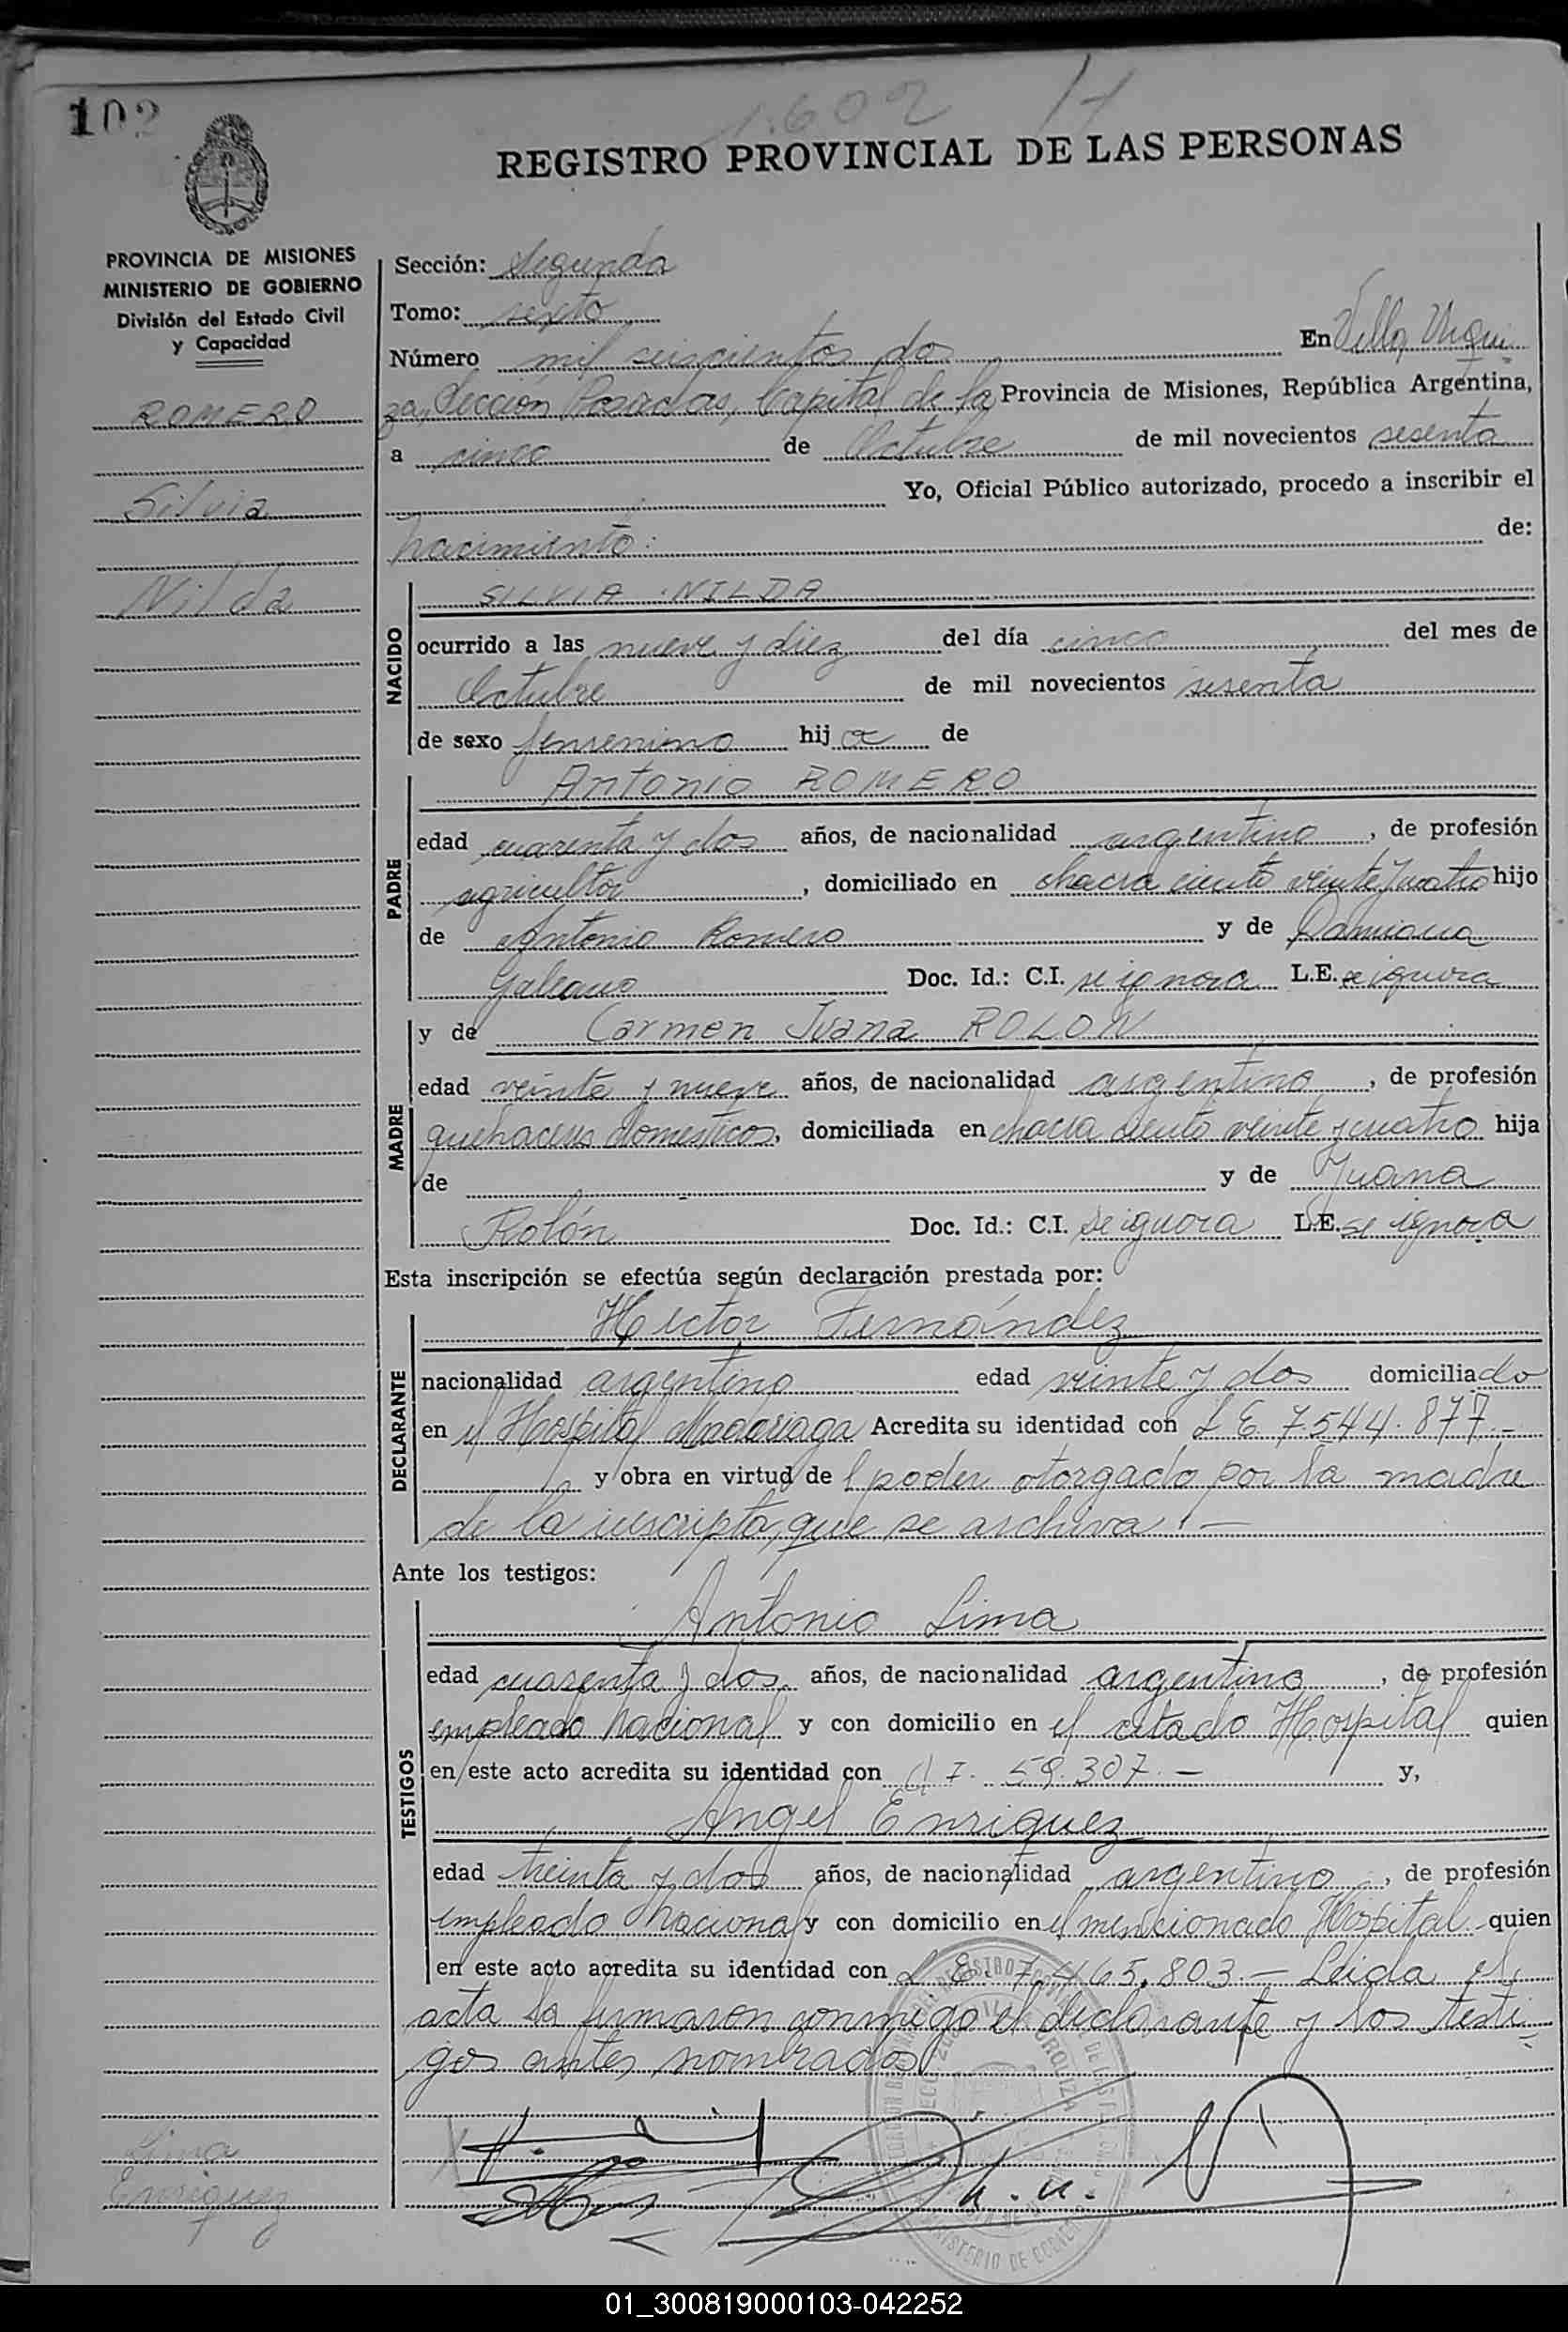 102
1.602
REGISTRO PROVINCIAL DE LAS PERSONAS
PROVINCIA DE MISIONES
MINISTERIO DE GOBIERNO
División del Estado Civil
y Capacidad
ROMERO
Silvia
Nilda
Sección: Segunda
Tomo: sexto
Número mil seiscientos dos En Villa Urqui
za, Sección Posadas, Capital de la Provincia de Misiones, República Argentina,
a cinco de Octubre de mil novecientos sesenta
Yo, Oficial Público autorizado, procedo a inscribir el
nacimiento: de:
NACIDO
SILVIA NILDA
ocurrido a las nueve y diez del día cinco del mes de
Octubre de mil novecientos sesenta
de sexo femenino hija de
PADRE
Antonio ROMERO
edad cuarenta y dos años, de nacionalidad argentino, de profesión
agricultor, domiciliado en chacra ciento veinte y cuatro hijo
de Antonio Romero y de Damiana
Galeano Doc. Id.: C.I. se ignora L.E. se ignora
MADRE
y de Carmen Juana ROLON
edad veinte y nueve años, de nacionalidad argentina, de profesión
quehaceres domesticos, domiciliada en chacra ciento veinte y cuatro hija
de y de Juana
Rolón Doc. Id.: C.I. se ignora L.E. se ignora
Esta inscripción se efectúa según declaración prestada por:
DECLARANTE
Hector Fernández
nacionalidad argentino edad veinte y dos domiciliado
en el Hospital Madariaga Acredita su identidad con L E 7.544.877.-
y obra en virtud del poder otorgado por la madre
de la inscripta, que se archiva.-
Ante los testigos:
TESTIGOS
Antonio Lima
edad cuarenta y dos años, de nacionalidad argentino, de profesión
empleado nacional y con domicilio en el citado Hospital quien
en este acto acredita su identidad con C I. 59.307.- y,
Angel Enriquez
edad treinta y dos años, de nacionalidad argentino, de profesión
empleado nacional y con domicilio en el mencionado Hospital quien
en este acto acredita su identidad con L E. 7.465.803.- Leida el
acta la firmaron conmigo el declarante y los testi
gos antes nombrados
Lima
Enriquez
01_300819000103-042252